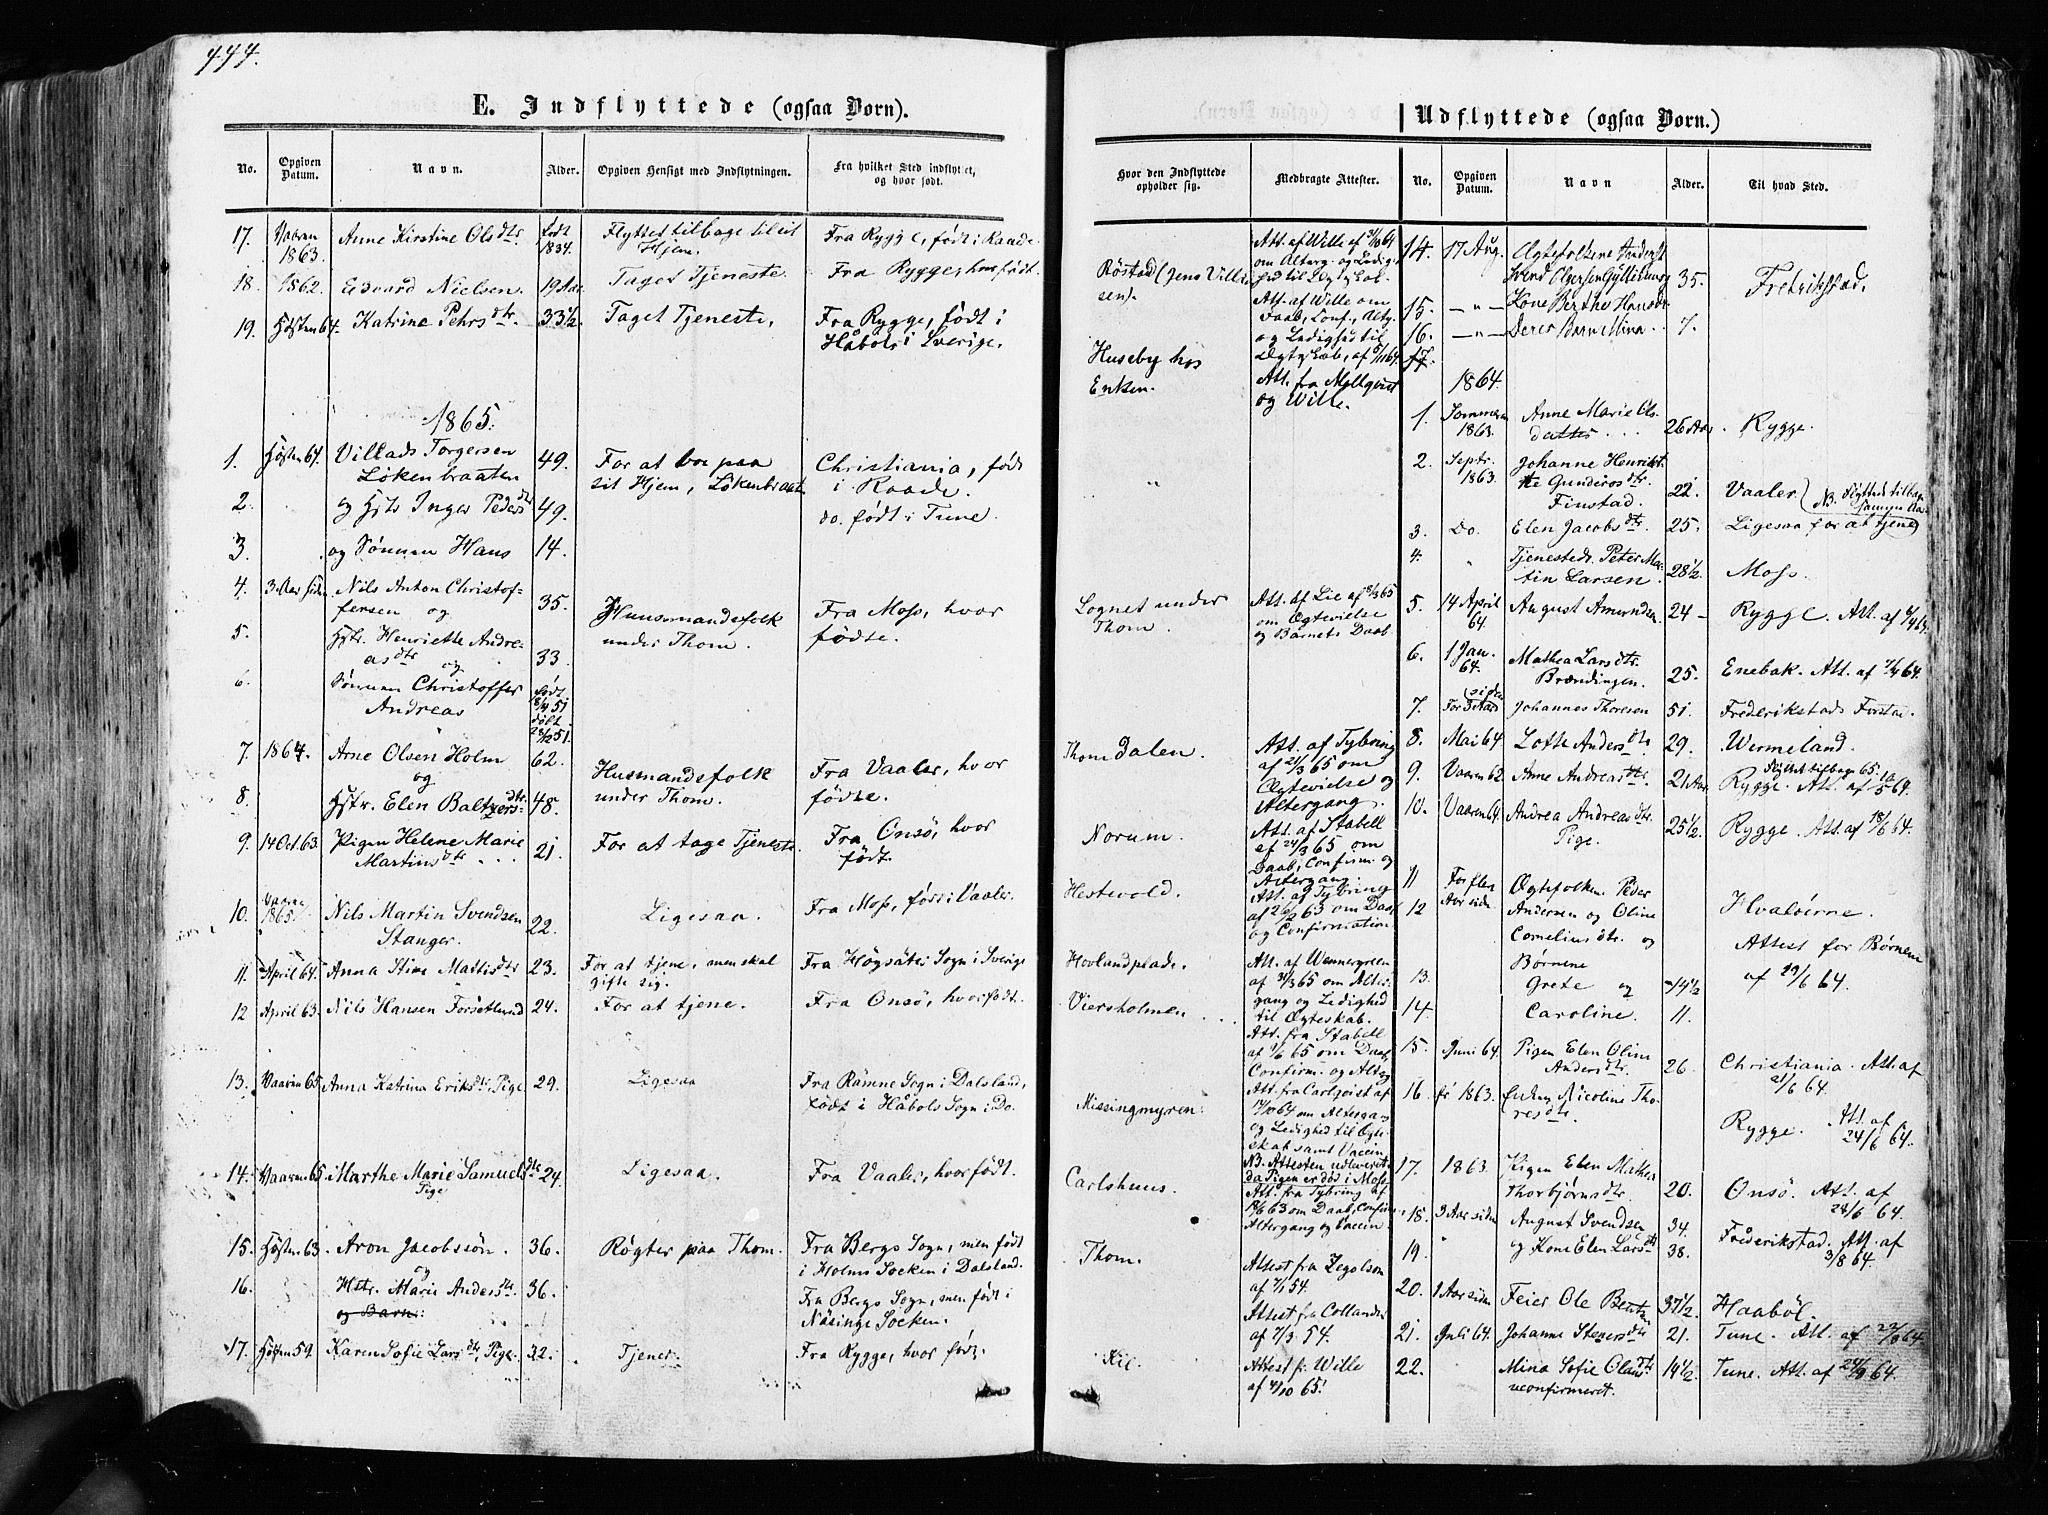 444.
E. Indflyttede (ogsaa Børn).
No.
Opgiven Datum.
Navn.
Alder.
Opgiven Hensigt med Indflytningen.
Fra hvilket Sted indflyttet, og hvor født.
17. Vaaren 1863. Anne Kirstine Olsdtr. født 1834. Flyttet tilbage til sit Hjem. Fra Rygge, født i Raade.
18. 1862. Edvard Nielsen. 19 Aar Taget Tjeneste. Fra Rygge, hvor født.
19. Høsten 64. Katrine Pehrsdtr. 33½. Taget Tjeneste. Fra Rygge, født i Håbols i Sverige.
1865.
1. Høsten 64. Villads Torgersen Løkenbraaten 49. For at boe paa sit Hjem, Løkenbraaten Christiania, født i Raade.
2. og Hstr Inger Pedersdtr 49. do. født i Tune.
3. og Sønnen Hans 14.
4. 3 Aar siden Nils Anton Christoffersen og 35. Huusmandsfolk under Thom. Fra Moss, hvor fødte.
5. Hstr. Henriette Andreasdtr og 33.
6. Sønnen Christoffer Andreas født 18/4 51 døbt 28/12 51.
7. 1864. Arne Olsen Holm og 62. Husmandsfolk under Thom. Fra Vaaler, hvor fødte.
8. Hstr. Elen Baltzersdtr 48.
9. 14 Oct. 63. Pigen Helene Marie Martinsdtr 21. For at tage Tjeneste. Fra Onsö, hvor født.
10. Vaaren 1865. Nils Martin Svendsen Stanger. 22. Ligesaa. Fra Moss, født i Vaaler.
11. April 64. Anna Stina Mattisdtr 23. For at tjene, men skal gifte sig. Fra Högsäters Sogn i Sverige
12 April 63. Nils Hansen Forsetlund 24. For at tjene. Fra Onsö, hvor født.
13. Vaaren 65. Anna Katrina Eriksdtr. Pige 29. Ligesaa Fra Rämne Sogn i Dalsland, født i Håbols Sogn i Do.
14. Vaaren 65. Marthe Marie Samuelsdtr Pige 24. Ligesaa. Fra Vaaler, hvor født.
15. Høsten 63. Aron Jacobssön. 36. Røgter paa Thom. Fra Bergs Sogn, men født i Holms Socken i Dalsland.
16. og Hstr. Marie Andersdtr 36. Fra Bergs Sogn, men født i Näsinge Socken.
og Barn:
17. Høsten 59. Karen Sofie Larsdtr, Pige. 32. Tjener. Fra Rygge, hvor født.
Udflyttede (ogsaa Børn.)
Hvor den Indflyttede opholder sig.
Medbragte Attester.
No.
Opgiven Datum.
Navn
Alder.
Til hvad Sted.
Röstad (Jens Villadsen).
Huseby hos Enken.
"
Lognet under Thom.
Thomdalen.
Norum.
Hestevold.
Hovlandplads.
Viersholmen
Missingmyren.
Carlshuus.
Thom.
Kil.
Att. af Wille af 3/10 64 om Alterg. og Ledighed til Ægteskab.
Att. af Wille om Daab, Conf., Altg. og Ledighed til Ægteskab, af 5/11 64.
Att. fra Mollqvist og Wille.
Att. af Lie af 8/3 65 om Ægtevielse og Barnets Daab.
Att. af Tybring af 21/3 65 om Ægtevielse og Altergang.
Att. af Stabell af 24/3 65 om Daab, Confirm. og Altergang.
Att. af Tybring af 26/2 63 om Daab og Confirmation
Att. af Wennergreen af 31/3 65 om Altergang og Ledighed til Ægteskab.
Att. fra Stabell af 1/6 65 om Daab, Confirm. og Alterg.
Att. fra Carlqvist af 17/10 64 om Altergang og Ledighed til Ægteskab samt Vaccin.
NB. Attesten udleveret, da Pigen er død i Moss.
Att. fra Tybring af 18/6 63 om Daab, Confirm., Altergang og Vaccin
Attest fra Zegolson af 7/1 54.
Attest fra Collander af 7/3 54.
Attest fr. Wille af 4/10 65.
14. 17 Aug. Ægtefolkene Anders Svend Olgersen Gyllieborg 35. Fredrikstad.
15. —"— Kone Berthe Hansdtr
16. —"— Deres Barn Mina 7.
17.
1864.
1. Sommeren 1863. Anne Marie Olsdatter 26 Aar. Rygge.
2. Septr. 1863. Johanne Henriette Gundersdtr. Finstad. 22. Vaaler (NB. Flyttede tilbage samme Aar)
3. Do. Elen Jacobsdtr 25. Ligesaa for at tjene
4. " Tjenestedr. Peter Martin Larsen 28½. Moss.
5. 14 April 64. August Amundsen 24 — Rygge. Att. af 4/4 64.
6. 1 Jan. 64. Mathea Larsdtr. Brændingen. 25. Enebak. Att. af 7/4 64.
7. Johannes Thoresen 51. Frederikstads Forstad.
8. Mai 64 Lotte Andersdtr 29. Wermeland.
9. Vaaren 62. Anne Andreasdtr 21 Aar Flyttet tilbage 65. Rygge. Att. af 10/5 64.
10. Vaaren 64. Andrea Andreasdtr Pige. 25½ Rygge. Att. af 18/6 64.
11 For flere Aar siden Ægtefolkene Peder
12 Andersen og Oline Corneliusdtr. og Hvalöerne.
Attest for Børnene af 23/6 64.
13. Børnene Grete og 14½
14. Caroline. 11.
15. Juni 64. Pigen Elen Oline Andersdtr 26. Christiania. Att. af 21/6 64.
16. 1863. Enken Nicoline Thoresdtr. Rygge. Att. af 24/6 64.
17. 1863. Pigen Elen Mathea Thorbjørnsdtr. 20. Onsö. Att. af 28/6 64.
18. 3 Aar siden August Svendsen 34. Frederikstad. Att. af 3/8 64.
19. " og Kone Elen Larsdtr 38.
20. 1 Aar siden Feier Ole Bentzen 37½ Haaböl.
21. Juli 64. Johanne Stenersdtr 21. Tune. Att. af 22/9 64.
22. Mina Sofie Olausdtr uconfirmeret. 14½ Tune. Att. af 24/9 64.